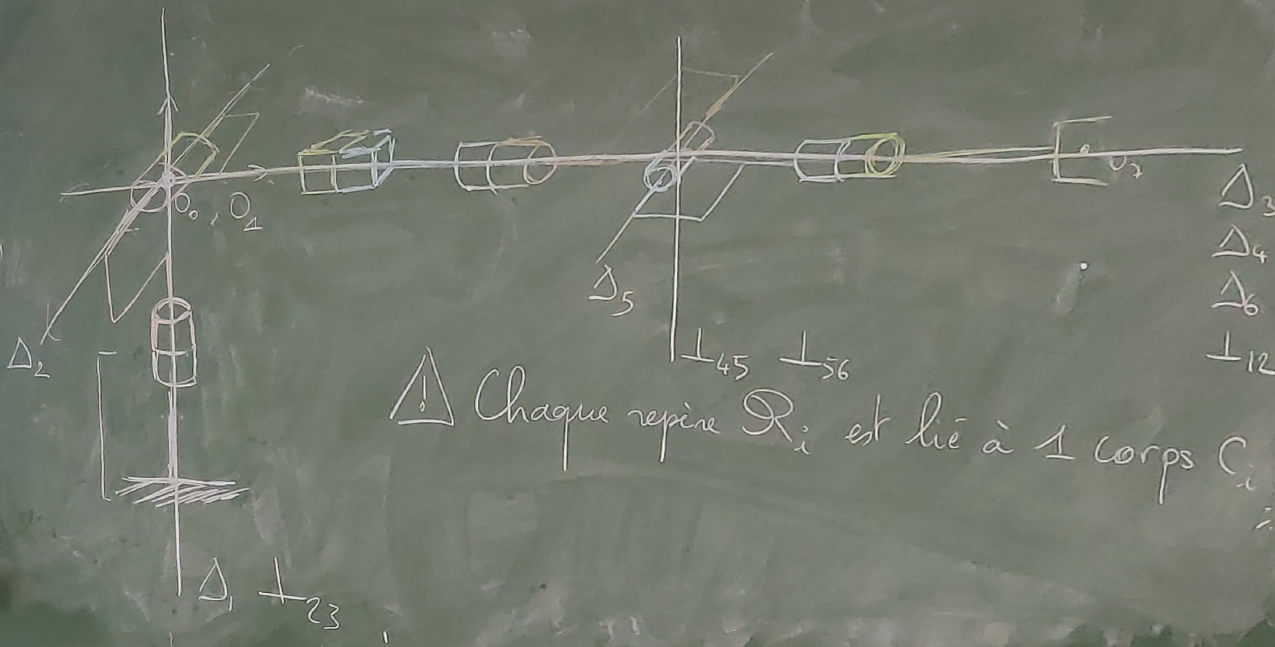 O₀, O₁
O₇
Δ₃
Δ₄
Δ₆
⊥₁₂
Δ₅
Δ₂
⊥₄₅ ⊥₅₆
⚠ Chaque repère ℛᵢ est lié à 1 corps Cᵢ
Δ₁ ⊥₂₃